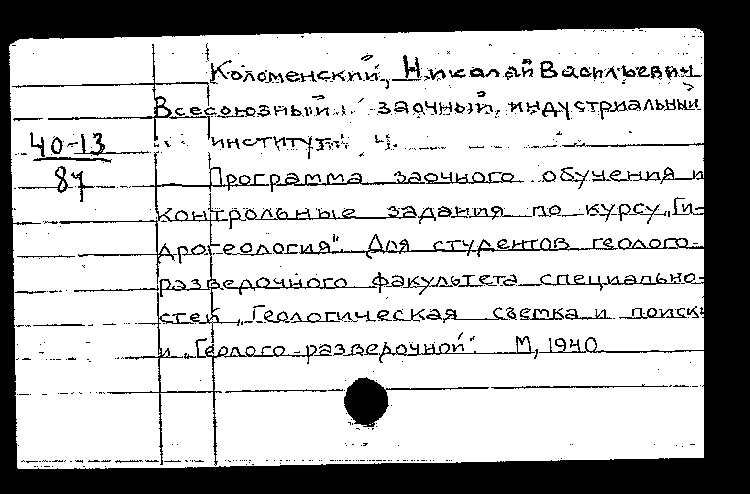 Коломенский, Николай Васильевич
Всесоюзный заочный индустриальный
40-13
институт
87
Программа заочного обучения и
контрольные задания по курсу „Ги-
дрогеология". Для студентов геолого-
разведочного факультета специально-
стей „Геологическая съемка и поиски
и „Геолого разведочной". М, 1940